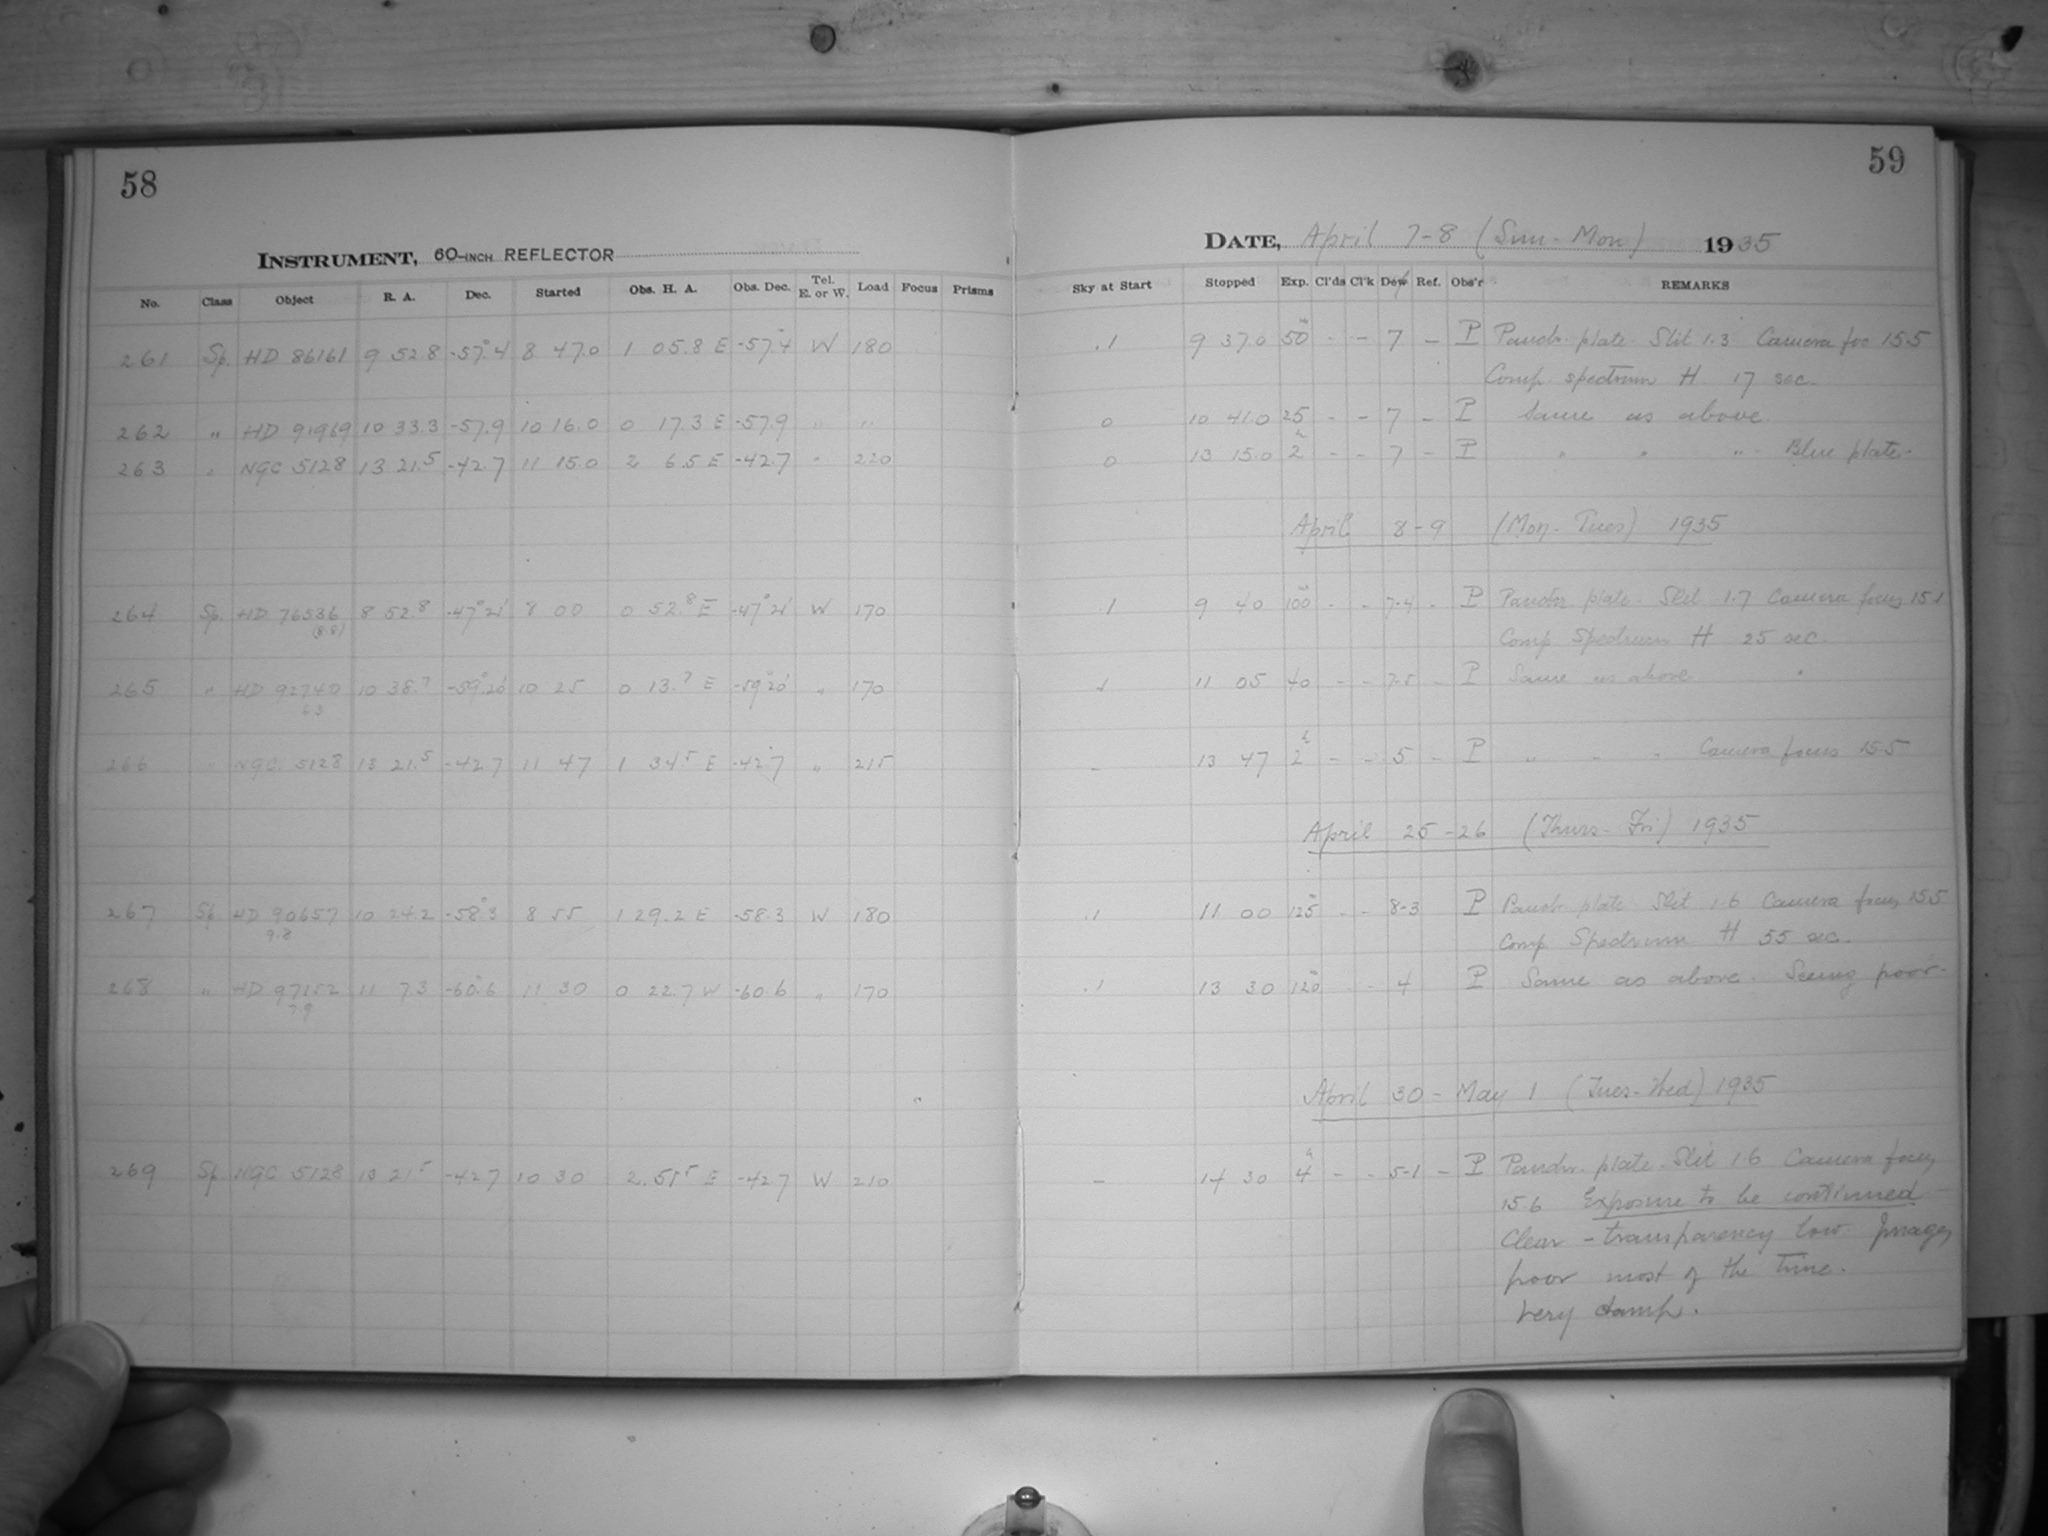 58
INSTRUMENT, 60-INCH REFLECTOR
No. Class Object R. A. Dec. Started Obs. H. A. Obs. Dec. Tel. E. or W. Load Focus Prisms
261 Sp. HD 86161 9 52.8 -57°.4 8 47.0 1 05.8 E -57°.4 W 180
262 " HD 91969 10 33.3 -57.9 10 16.0 0 17.3 E -57.9 " "
263 " NGC 5128 13 21.5 -42.7 11 15.0 2 6.5 E -42.7 " 220
264 Sp. HD 76536 8 52.8 -47°21' 8 00 0 52.8 E -47°21' W 170
(8.8)
265 " HD 92740 10 38.7 -59°20' 10 25 0 13.7 E -59°20' " 170
266 " NGC 5128 13 21.5 -42.7 11 47 1 34.5 E -42.7 " 215
267 Sp. HD 90657 10 24.2 -58°.3 8 55 1 29.2 E -58.3 W 180
9.8
268 " HD 97152 11 7.3 -60°.6 11 30 0 22.7 W -60.6 " 170
7.9
269 Sp. NGC 5128 13 21.5 -42.7 10 30 2.51.5 E -42.7 W 210
59
DATE, April 7-8 (Sun-Mon) 1935
Sky at Start Stopped Exp. Cl'ds Cl'k Dew Ref. Obs'r REMARKS
.1 9 37.0 50m - - 7 - P Panchr. plate. Slit 1.3 Camera foc 15.5
Comp. spectrum H 17 sec.
0 10 41.0 25 - - 7 - P Same as above.
0 13 15.0 2h - - 7 - P " " " Blue plate.
April 8-9 (Mon-Tues) 1935
.1 9 40 100m - - 7-4 - P Panchr. plate. Slit 1.7 Camera focus 15.1
Comp Spectrum H 25 sec.
.1 11 05 40 - - 7-5 - P Same as above
- 13 47 2h - - 5 - P " " " Camera focus 15.5
April 25-26 (Thurs-Fri) 1935
.1 11 00 125m - - 8-3 P Panchr. plate Slit 1.6 Camera focus 15.5
Comp. Spectrum H 55 sec.
.1 13 30 120m - - 4 P Same as above. Seeing poor.
April 30 - May 1 (Tues-Wed) 1935
- 14 30 4h - - 5-1 - P Panchr. plate. Slit 1.6 Camera focus
15.6 Exposure to be continued
Clear - transparency low. Images
poor most of the time.
Very damp.